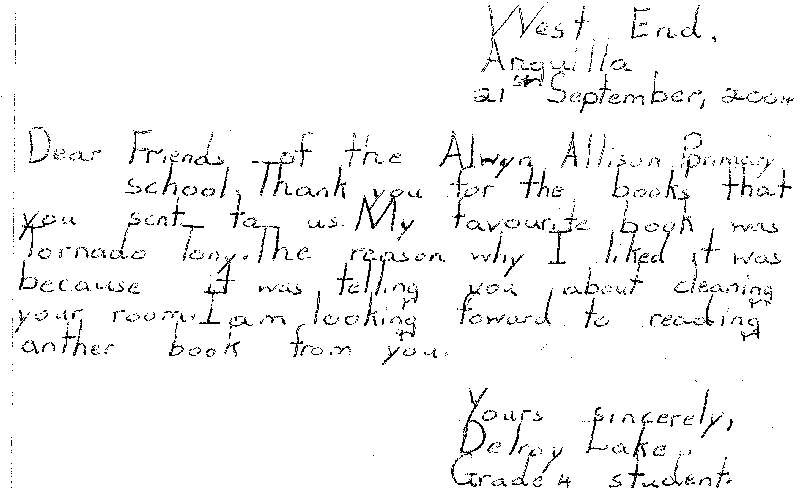 West End,
Anguilla
21st September, 2004
Dear Friends of the Alwyn Allison Primary
school, Thank you for the books that
you sent to us. My favourite book was
Tornado Tony. The reason why I liked it was
because it was telling you about cleaning
your room. I am looking foward to reading
anther book from you.
Yours sincerely,
Delroy Lake.
Grade 4 student.